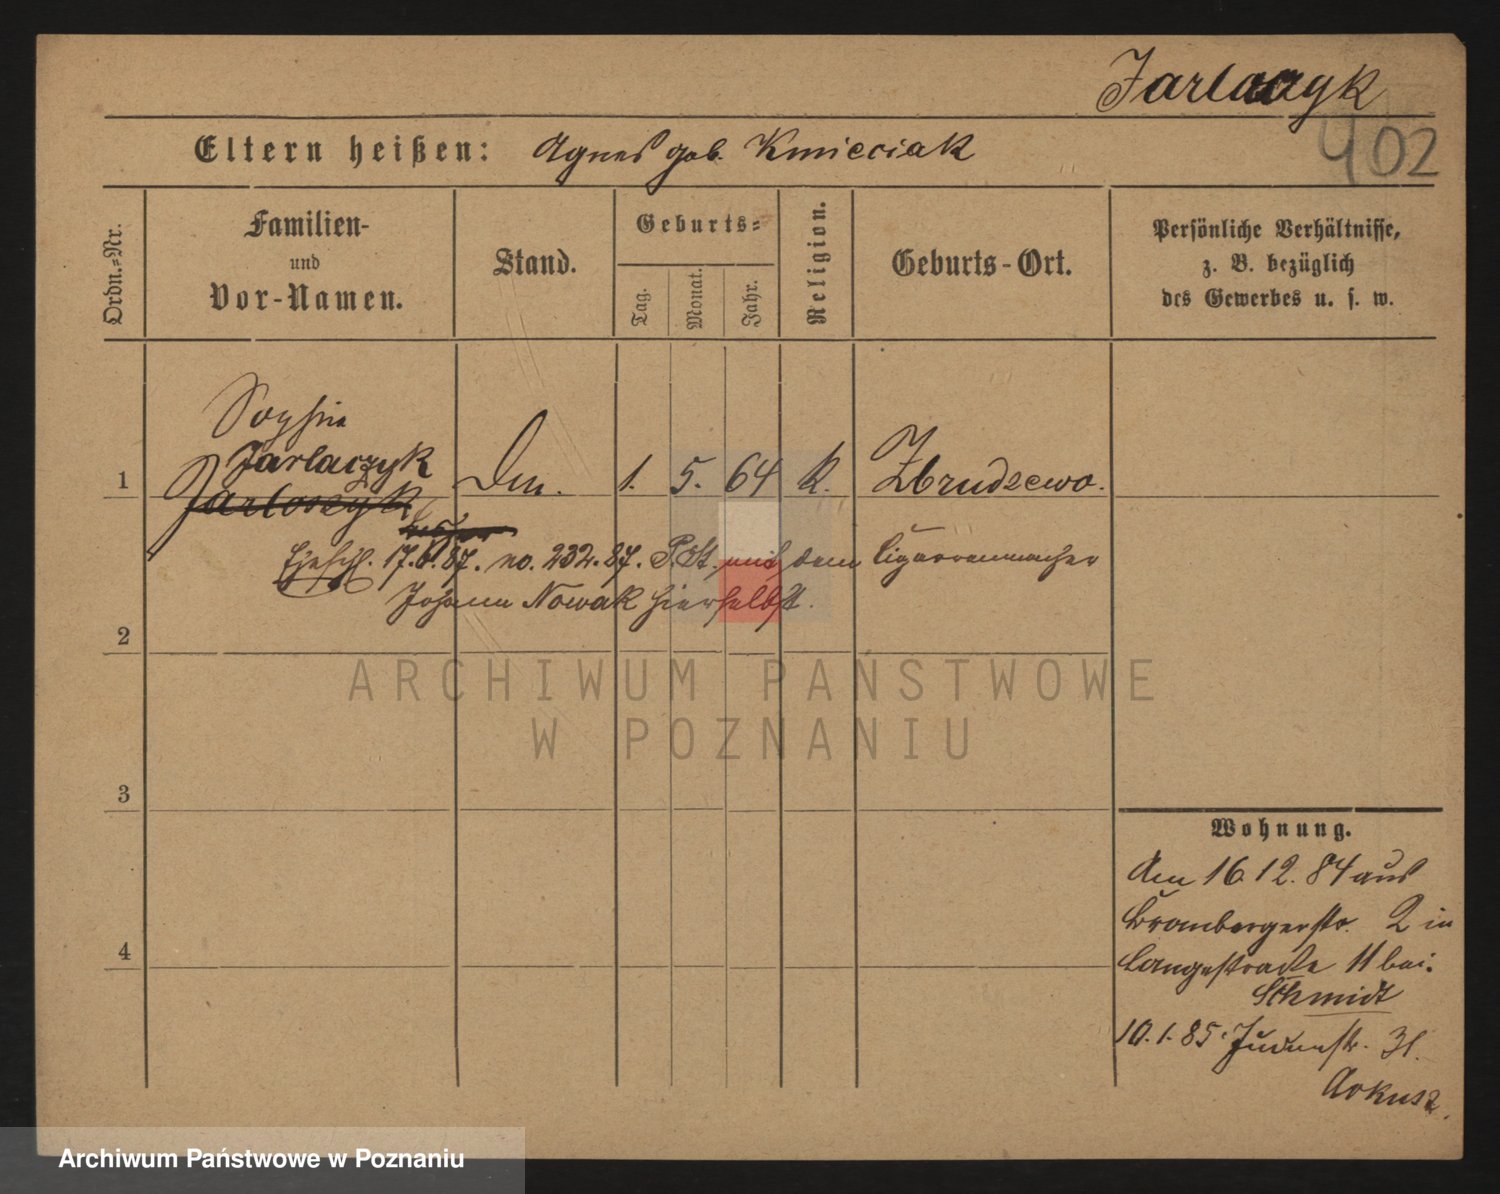 Jarlaczyk
402
Eltern heißen: Agnes geb. Kmieciak
Ordn.-Nr.
Familien-
und
Vor-Namen.
Stand.
Geburts-
Tag.
Monat.
Jahr.
Religion.
Geburts-Ort.
Persönliche Verhältnisse,
z. B. bezüglich
des Gewerbes u. s. w.
Sophie
Jarlaczyk
1 Jarloszyk Dm. 1. 5. 64 K. Zbrudzewo.
Ehesch. 17.6.87. no. 232.87. P.St. mit dem Cigarrenmacher
Johann Nowak hierselbst.
2
ARCHIWUM PAŃSTWOWE
W POZNANIU
3
Wohnung.
Am 16.12.84 aus
Brombergerstr. 2 in
4
Langestraße 11 bei:
Schmidt
10.1.85. Judenstr. 31.
Arkusz.
Archiwum Państwowe w Poznaniu